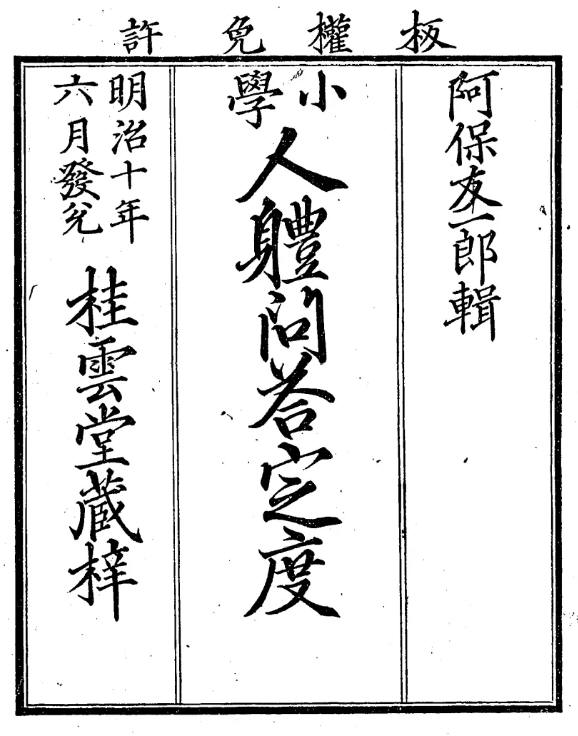 板權免許
阿保友一郎輯
小學
人體問答定度
明治十年
六月發兌
桂雲堂蔵梓